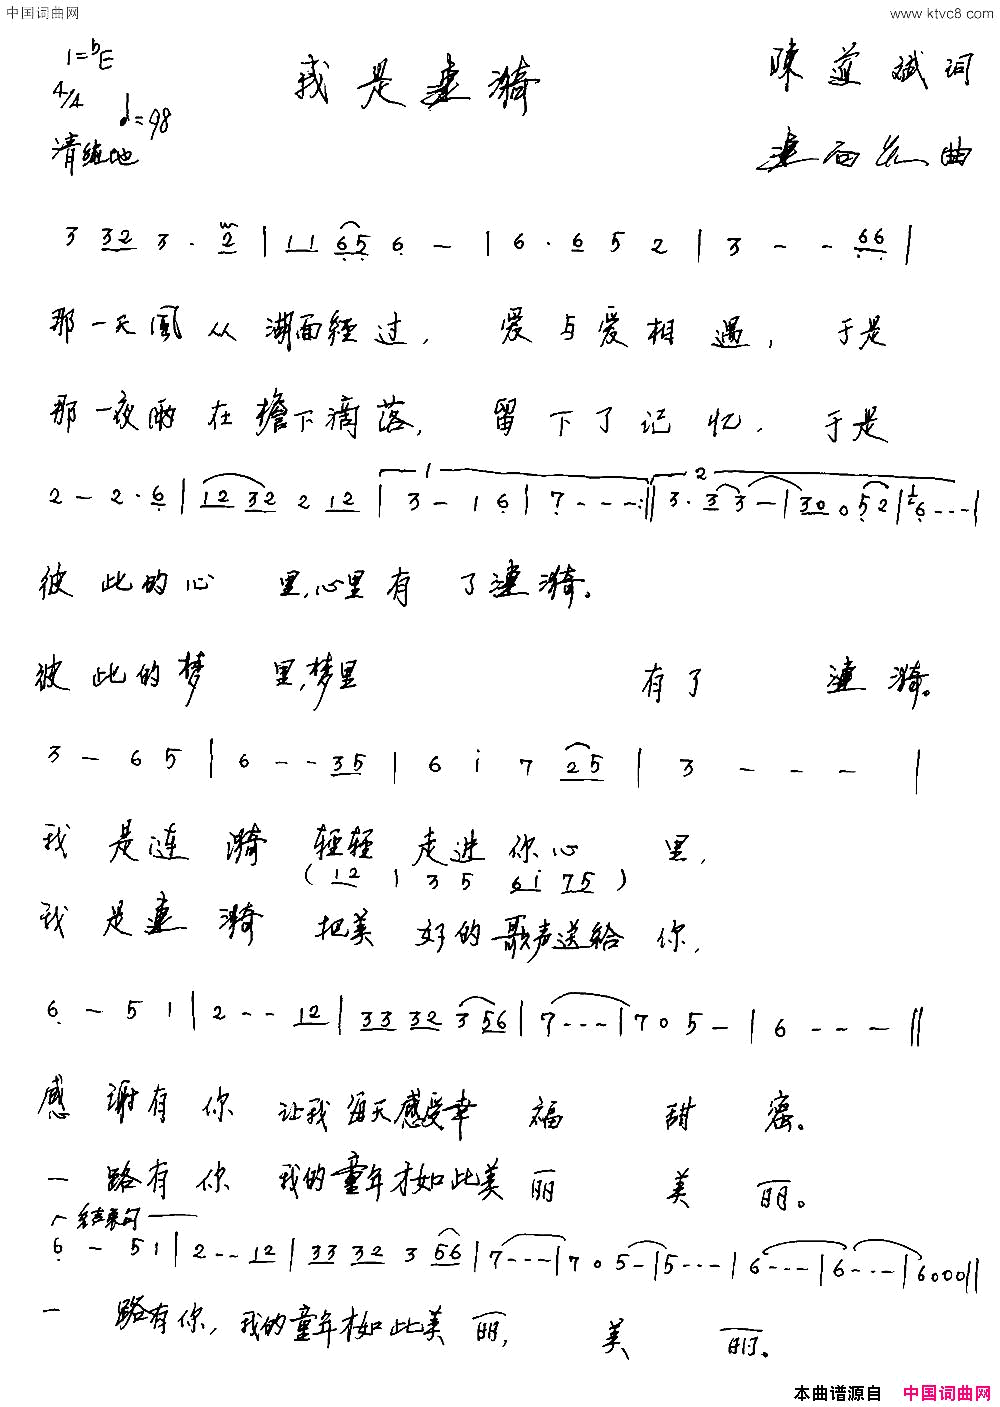 中国词曲网
www.ktvc8.com
1=bE
4/4
♩=98
清纯地
我是涟漪
陳道斌词
曲
3 32 3· 2 | 11 65 6 - | 6· 6 5 2 | 3 - - 66 |
那一天風从湖面经过，爱与爱相遇，于是
那一夜雨在檐下滴落，留下了记忆，于是
2 - 2·6 | 12 32 2 12 | 1 3 - 1 6 | 7 - - - :|| 2 3· 3 3 - | 300 52 | 6 - - - |
彼此的心里，心里有了涟漪。
彼此的梦里，梦里有了涟漪。
3 - 6 5 | 6 - - 35 | 6 i 7 25 | 3 - - - |
我是涟漪轻轻走进你心里，
(12 1 3 5 6i 75)
我是涟漪把美好的歌声送给你，
6 - 5 1 | 2 - - 12 | 33 32 3 56 | 7 - - - | 7 0 5 - | 6 - - - ||
感谢有你让我每天感受幸福甜蜜。
一路有你我的童年才如此美丽美丽。
结束句
6 - 5 1 | 2 - - 12 | 33 32 3 56 | 7 - - - | 7 0 5 - | 5 - - - | 6 - - - | 6 - - - | 6000 ||
一路有你，我的童年才如此美丽，美丽。
本曲谱源自 中国词曲网